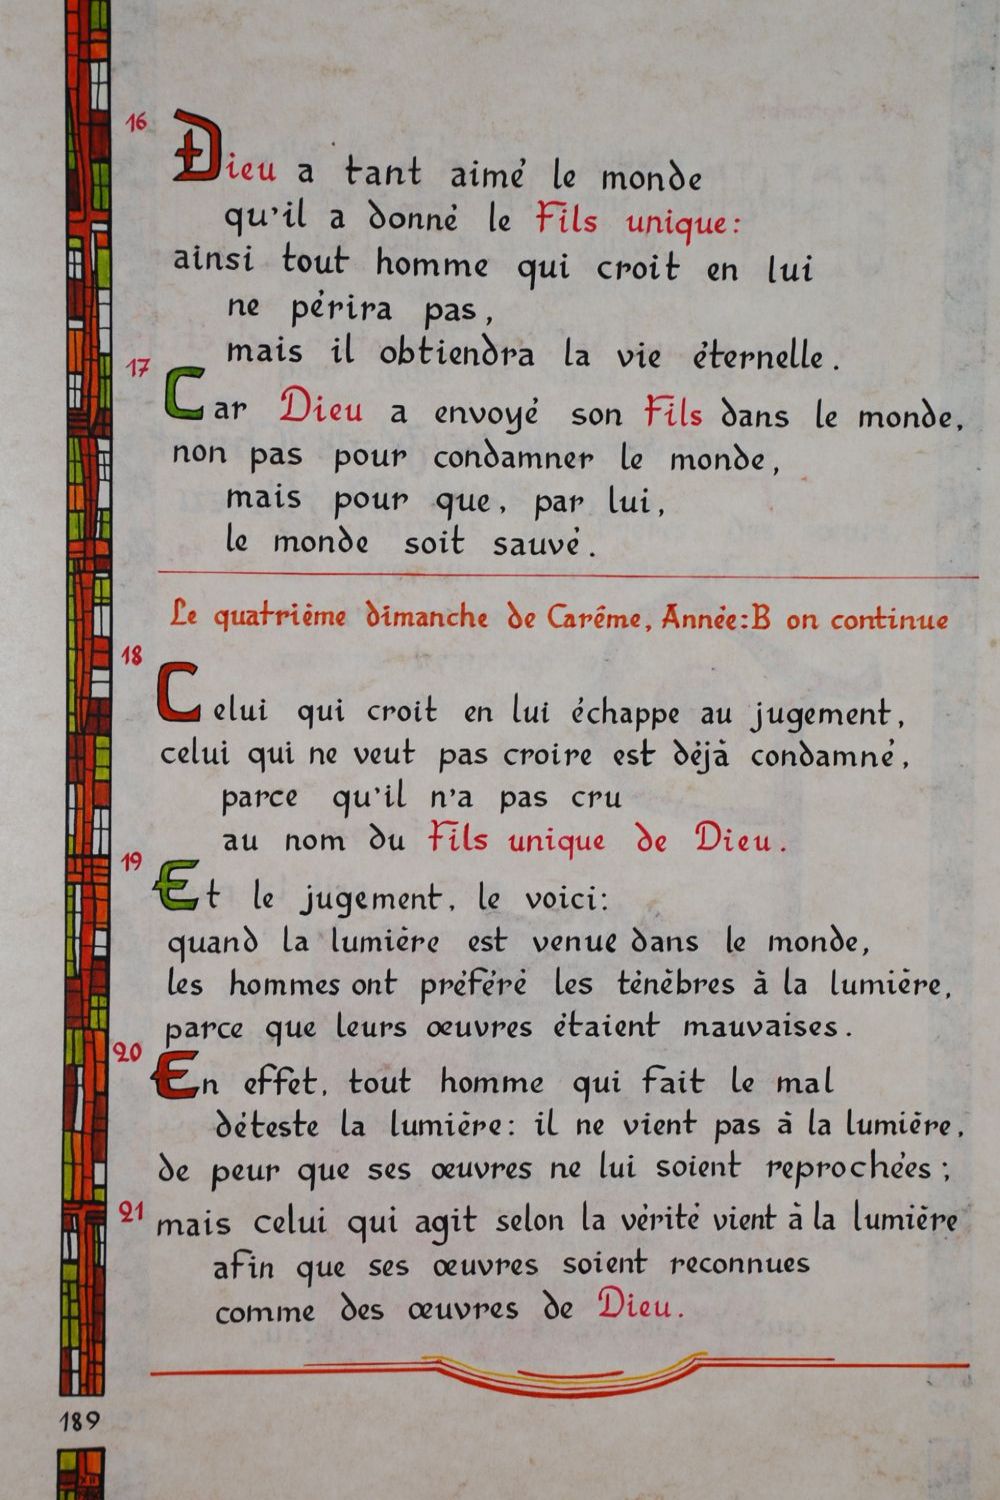 16
Dieu a tant aimé le monde
qu'il a donné le Fils unique:
ainsi tout homme qui croit en lui
ne périra pas,
mais il obtiendra la vie éternelle.
17
Car Dieu a envoyé son Fils dans le monde,
non pas pour condamner le monde,
mais pour que, par lui,
le monde soit sauvé.
Le quatrième dimanche de Carême, Année:B on continue
18
Celui qui croit en lui échappe au jugement,
celui qui ne veut pas croire est déjà condamné,
parce qu'il n'a pas cru
au nom du Fils unique de Dieu.
19
Et le jugement, le voici:
quand la lumière est venue dans le monde,
les hommes ont préféré les ténèbres à la lumière,
parce que leurs œuvres étaient mauvaises.
20
En effet, tout homme qui fait le mal
déteste la lumière: il ne vient pas à la lumière,
de peur que ses œuvres ne lui soient reprochées;
21 mais celui qui agit selon la vérité vient à la lumière
afin que ses œuvres soient reconnues
comme des œuvres de Dieu.
189